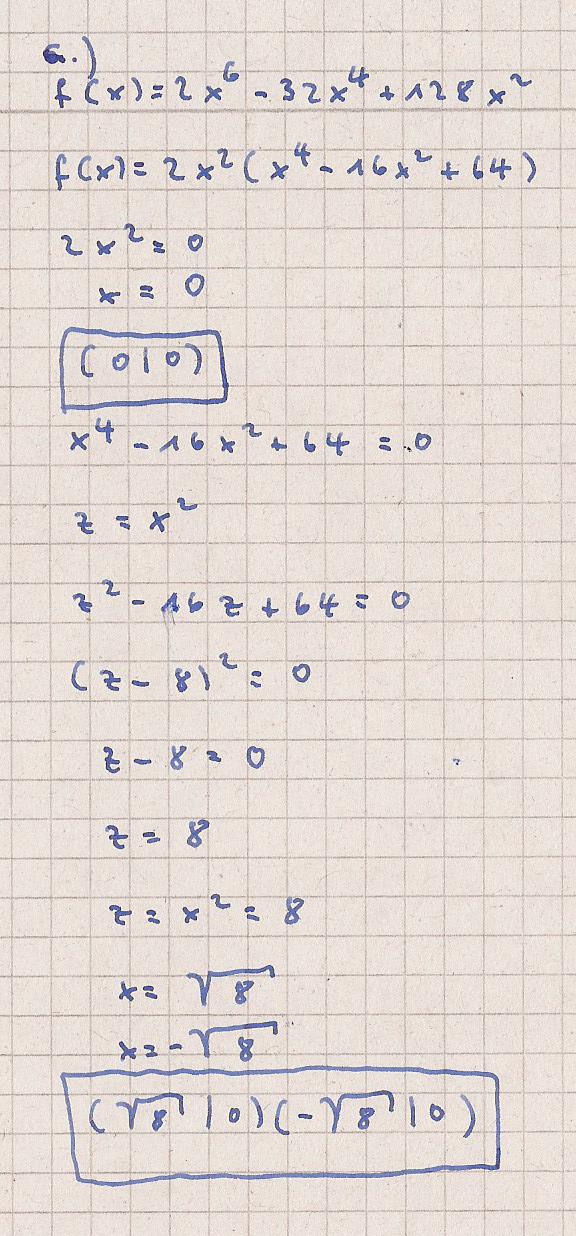 a.)
f(x)=2x⁶-32x⁴+128x²
f(x)=2x²(x⁴-16x²+64)
2x²=0
x=0
(0|0)
x⁴-16x²+64=0
z=x²
z²-16z+64=0
(z-8)²=0
z-8=0
z=8
z=x²=8
x=√8
x=-√8
(√8|0)(-√8|0)